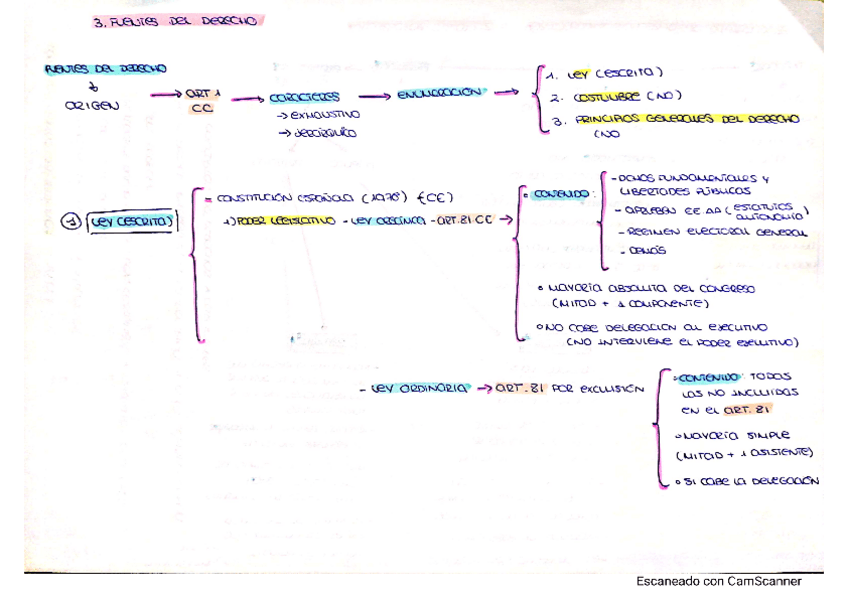 3. FUENTES DEL DERECHO
FUENTES DEL DERECHO
ORIGEN
ART 1
CC
CARACTERES
→ EXHAUSTIVO
→ JERÁRQUICO
ENUMERACIÓN
1. LEY (ESCRITA)
2. COSTUMBRE (NO)
3. PRINCIPIOS GENERALES DEL DERECHO
(NO
1 LEY (ESCRITA)
= CONSTITUCIÓN ESPAÑOLA (1978) {CE)
1) PODER LEGISLATIVO - LEY ORGÁNICA - ART. 81 CC →
CONTENIDO:
- DCHOS FUNDAMENTALES Y
LIBERTADES PÚBLICAS
- APRUEBEN EE.AA (ESTATUTOS
AUTONOMÍA)
- RÉGIMEN ELECTORAL GENERAL
- DEMÁS
MAYORÍA ABSOLUTA DEL CONGRESO
(MITAD + 1 COMPONENTE)
NO CABE DELEGACIÓN AL EJECUTIVO
(NO INTERVIENE EL PODER EJECUTIVO)
- LEY ORDINARIA → ART. 81 POR EXCLUSIÓN
CONTENIDO: TODAS
LAS NO INCLUIDAS
EN EL ART. 81
MAYORÍA SIMPLE
(MITAD + 1 ASISTENTE)
SI CABE LA DELEGACIÓN
Escaneado con CamScanner